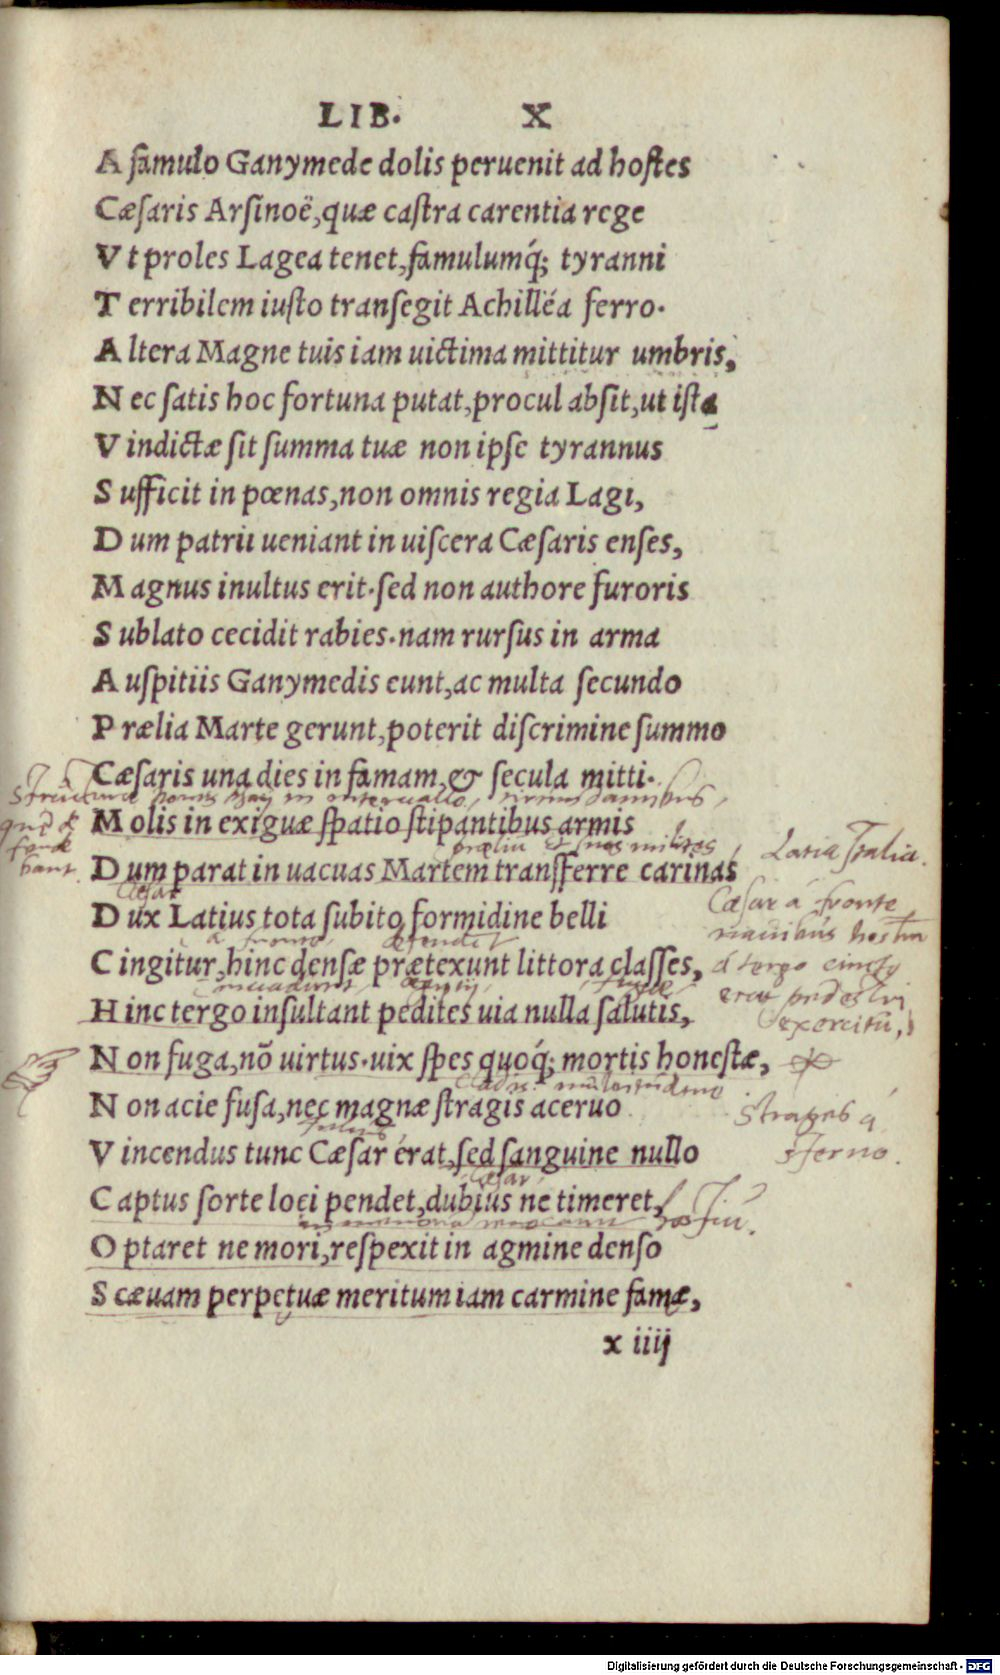 LIB. X
A famulo Ganymede dolis peruenit ad hostes
Cæsaris Arsinoë, quæ castra carentia rege
V t proles Lagea tenet, famulumq́; tyranni
T erribilem iusto transegit Achilléa ferro.
A ltera Magne tuis iam uictima mittitur umbris,
N ec satis hoc fortuna putat, procul absit, ut ista
V indictæ sit summa tuæ non ipse tyrannus
S ufficit in pœnas, non omnis regia Lagi,
D um patrii ueniant in uiscera Cæsaris enses,
M agnus inultus erit. sed non authore furoris
S ublato cecidit rabies. nam rursus in arma
A uspitiis Ganymedis eunt, ac multa secundo
P rælia Marte gerunt, poterit discrimine summo
Cæsaris una dies in famam, & secula mitti.
M olis in exiguæ spatio stipantibus armis
prœliu et suos milites
D um parat in uacuas Martem transferre carinas
Latia Italia.
Cæsar
D ux Latius tota subito formidine belli
Cæsar á fronte
nauibus
a fronte
C ingitur, hinc densæ prætexunt littora classes,
á tergo
H inc tergo insultant pedites uia nulla salutis,
erat pedestri
exercitu,
N on fuga, nō uirtus. uix spes quoq́; mortis honestæ,
multitudine
N on acie fusa, nec magnæ stragis aceruo
Strages á
sterno.
V incendus tunc Cæsar érat, sed sanguine nullo
Cæsar
C aptus sorte loci pendet, dubius ne timeret,
O ptaret ne mori, respexit in agmine denso
S cæuam perpetuæ meritum iam carmine famæ,
x iiij
Digitalisierung gefördert durch die Deutsche Forschungsgemeinschaft - DFG